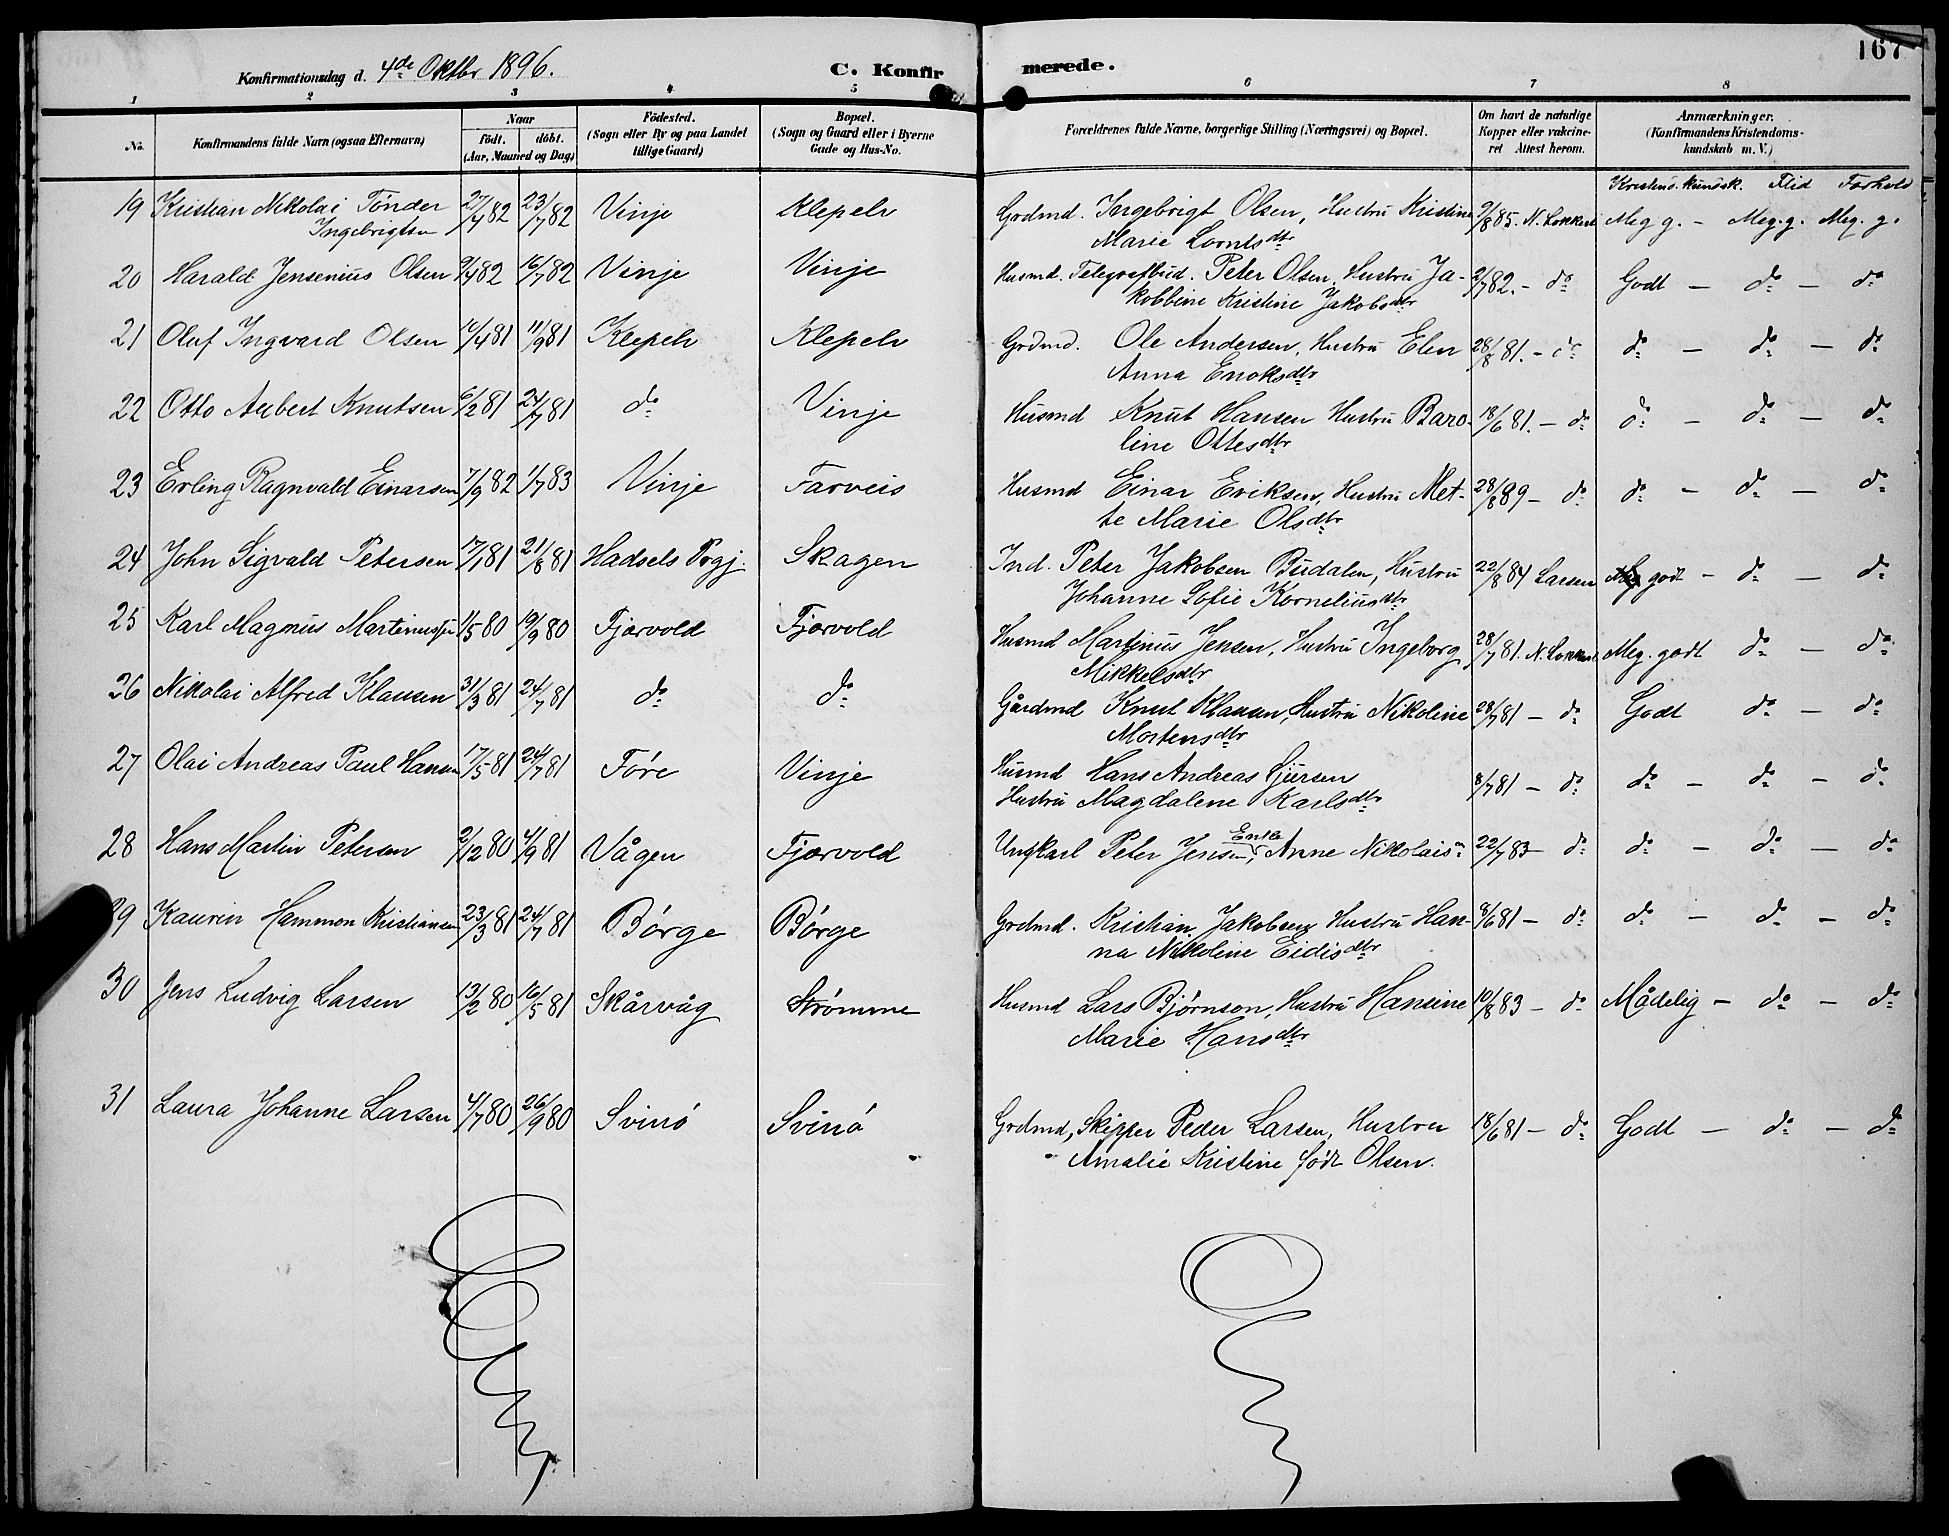 Konfirmationsdag d. 4de Oktbr 1896. C. Konfir merede. 167
1 2 3 4 5 6 7 8
No. Konfirmandens fulde Navn (ogsaa Efternavn) Naar Födt. döbt. (Aar, Maaned og Dag) Födested. (Sogn eller By og paa Landet tillige Gaard) Bopæl. (Sogn og Gaard eller i Byerne Gade og Hus-No. Forældrenes fulde Navne, borgerlige Stilling (Næringsvei) og Bopæl. Om havt de naturlige Kopper eller vakcineret Attest herom. Anmærkninger. (Konfirmandens Kristendomskundskab m. V.)
Kristend. kundsk. Flid Forhold
19 Kristian Nikolai Tönder 27/4 82 23/7 82 Vinje Klepelv Grdmd. Ingebrigt Olsen, Hustru Kristine 9/8 85. N. Lokkert Meg g. - Meg. g. Meg. g.
Ingebrigtsen Marie Lorntsdtr
20 Harald Jensenius Olsen 9/4 82 16/7 82 Vinje Vinje Husmd. Telegrafbud. Peter Olsen, Hustru Ja- 2/7 82. - do Godt - do - do
kobbine Kristine Jakobsdtr
21 Oluf Ingvard Olsen 16/4 81 11/9 81 Klepelv Klepelv Grdmd. Ole Andersen, Hustru Elen 28/8 81. - do do - do - do
Anna Enoksdtr
22 Otto Aubert Knutsen 6/2 81 24/7 81 do Vinje Husmd Knut Hansen Hustru Baro- 18/6 81. - do do - do - do
line Ottesdtr
23 Erling Ragnvald Einarsen 7/9 82 1/7 83 Vinje Farveis Husmd Einar Eriksen, Hustru Met- 28/8 89 - do do - do - do
te Marie Olsdtr
24 John Sigvald Petersen 17/1 81 21/8 81 Hadsels Prgj. Skagen Ind. Peter Jakobsen Budalen, Hustru 22/8 84 Larsen godt - do - do
Johanne Sofie Korneliusdtr
25 Karl Magnus Martinussen 1/5 80 19/9 80 Fjærvold Fjærvold Husmd Martinus Jensen, Hustru Ingeborg 28/7 81. N. Lokkert Meg. godt do - do
Mikkelsdtr
26 Nikolai Alfred Klausen 31/3 81 24/7 81 do do Gårdmd Knut Klausen, Hustru Nikoline 28/7 81 - do Godt do - do
Mortensdtr
27 Olai Andreas Paul Hansen 17/5 81 24/7 81 Före Vinje Husmd Hans Andreas Sjursen 8/7 81 - do do - do - do
Hustru Magdalene Karlsdtr
28 Hans Martin Petersen 2/12 80 4/9 81 Vågen Fjærvold Ungkarl Peter Jensen, Enke Anne Nikolais 22/7 83 - do do - do - do
29 Kaurin Hammon Kristiansen 23/3 81 24/7 81 Börge Börge Grdmd. Kristian Jakobsen Hustru Han- 8/6 81 - do do - do - do
na Nikoline Eidisdtr
30 Jens Ludvig Larsen 13/2 80 16/5 81 Skårvåg Strömme Husmd Lars Bjørnson, Hustru Hansine 10/8 83 - do Mådelig - do - do
Marie Hansdtr
31 Laura Johanne Larsen 4/7 80 26/9 80 Svinö Svinö Grdmd, Skipper Peder Larsen, Hustru 18/6 81 - do Godt - do - do
Amalie Kristine födt Olsen.